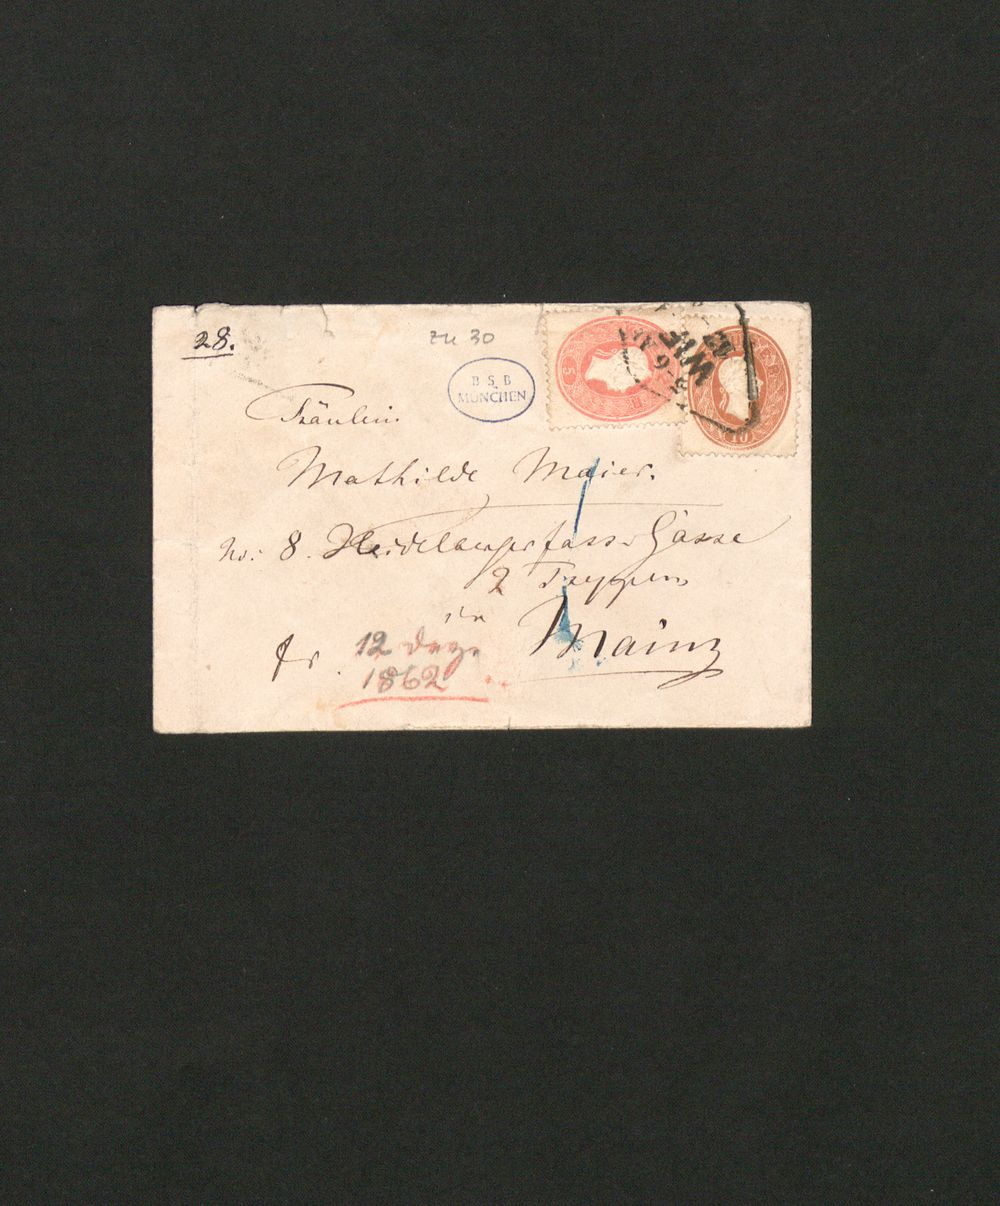 28.
zu 30
B S B
MÜNCHEN
5
10
WIE
Fräulein
Mathilde Maier.
No: 8. Heidelbergerfass-Gasse
2 Treppen
in
Mainz
fr.
12 Dez.
1862